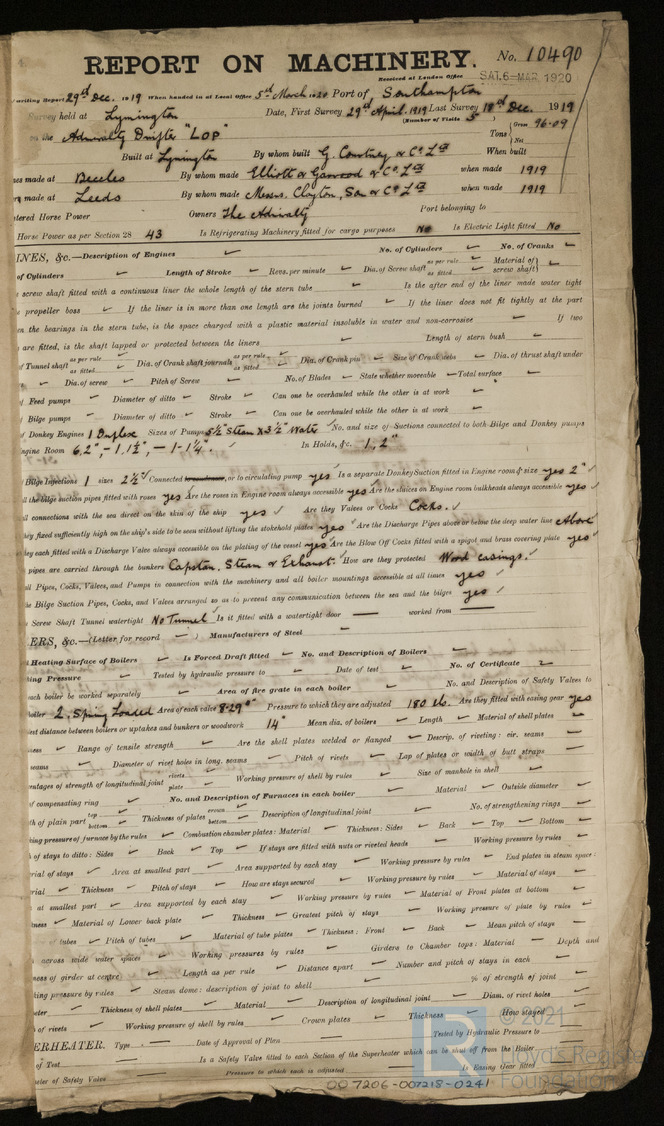 REPORT ON MACHINERY. No. 10490
Received at London Office SAT. 6-MAR 1920
writing Report 29th Dec. 1919 When handed in at Local Office 5th March 1920 Port of Southampton
Survey held at Lymington Date, First Survey 29th April. 1919 Last Survey 18th Dec. 1919
(Number of Visits 5)
on the Admiralty Drifter "LOP" Tons { Gross 96.09
Net
Built at Lymington By whom built G. Courtney & Co Ltd When built
es made at Beccles By whom made Elliott & Garwood & Co Ltd when made 1919
made at Leeds By whom made Messrs. Clayton, Son & Co Ltd when made 1919
tered Horse Power Owners The Admiralty Port belonging to
Horse Power as per Section 28 43 Is Refrigerating Machinery fitted for cargo purposes No Is Electric Light fitted No
INES, &c.—Description of Engines No. of Cylinders No. of Cranks
of Cylinders Length of Stroke Revs. per minute Dia. of Screw shaft as per rule as fitted Material of screw shaft
screw shaft fitted with a continuous liner the whole length of the stern tube Is the after end of the liner made water tight
propeller boss If the liner is in more than one length are the joints burned If the liner does not fit tightly at the part
en the bearings in the stern tube, is the space charged with a plastic material insoluble in water and non-corrosive If two
are fitted, is the shaft lapped or protected between the liners Length of stern bush
of Tunnel shaft as per rule as fitted Dia. of Crank shaft journals as per rule as fitted Dia. of Crank pin Size of Crank webs Dia. of thrust shaft under
Dia. of screw Pitch of Screw No. of Blades State whether moveable Total surface
of Feed pumps Diameter of ditto Stroke Can one be overhauled while the other is at work
f Bilge pumps Diameter of ditto Stroke Can one be overhauled while the other is at work
of Donkey Engines 1 Duplex Sizes of Pumps 5½" Steam x 3½" Water No. and size of Suctions connected to both Bilge and Donkey pumps
ngine Room 6, 2", - 1, 1½", - 1 - 1¼". In Holds, &c. 1, 2"
Bilge Injections 1 sizes 2½" Connected or to circulating pump yes Is a separate Donkey Suction fitted in Engine room & size yes 2"
ll the bilge suction pipes fitted with roses yes Are the roses in Engine room always accessible yes Are the sluices on Engine room bulkheads always accessible yes
ll connections with the sea direct on the skin of the ship yes Are they Valves or Cocks Cocks.
hey fixed sufficiently high on the ship's side to be seen without lifting the stokehold plates yes Are the Discharge Pipes above or below the deep water line Above
hey each fitted with a Discharge Valve always accessible on the plating of the vessel yes Are the Blow Off Cocks fitted with a spigot and brass covering plate yes
pipes are carried through the bunkers Capstan, Steam & Exhaust. How are they protected Wood casings.
all Pipes, Cocks, Valves, and Pumps in connection with the machinery and all boiler mountings accessible at all times yes
he Bilge Suction Pipes, Cocks, and Valves arranged so as to prevent any communication between the sea and the bilges yes
Screw Shaft Tunnel watertight No Tunnel Is it fitted with a watertight door — worked from —
ERS, &c.—(Letter for record ) Manufacturers of Steel
Heating Surface of Boilers Is Forced Draft fitted No. and Description of Boilers
ing Pressure Tested by hydraulic pressure to Date of test No. of Certificate
each boiler be worked separately Area of fire grate in each boiler No. and Description of Safety Valves to
boiler 2. Spring Loaded Area of each valve 8.29" Pressure to which they are adjusted 180 lbs. Are they fitted with easing gear yes
est distance between boilers or uptakes and bunkers or woodwork 14" Mean dia. of boilers Length Material of shell plates
ness Range of tensile strength Are the shell plates welded or flanged Descrip. of riveting: cir. seams
seams Diameter of rivet holes in long. seams Pitch of rivets Lap of plates or width of butt straps
entages of strength of longitudinal joint rivets plate Working pressure of shell by rules Size of manhole in shell
of compensating ring No. and Description of Furnaces in each boiler Material Outside diameter
th of plain part top bottom Thickness of plates crown bottom Description of longitudinal joint No. of strengthening rings
king pressure of furnace by the rules Combustion chamber plates: Material Thickness: Sides Back Top Bottom
h of stays to ditto: Sides Back Top If stays are fitted with nuts or riveted heads Working pressure by rules
rial of stays Area at smallest part Area supported by each stay Working pressure by rules End plates in steam space:
rial Thickness Pitch of stays How are stays secured Working pressure by rules Material of stays
at smallest part Area supported by each stay Working pressure by rules Material of Front plates at bottom
kness Material of Lower back plate Thickness Greatest pitch of stays Working pressure of plate by rules
tubes Pitch of tubes Material of tube plates Thickness: Front Back Mean pitch of stays
across wide water spaces Working pressures by rules Girders to Chamber tops: Material Depth and
ness of girder at centre Length as per rule Distance apart Number and pitch of stays in each
king pressure by rules Steam dome: description of joint to shell % of strength of joint
eter Thickness of shell plates Material Description of longitudinal joint Diam. of rivet holes
of rivets Working pressure of shell by rules Crown plates Thickness How stayed
ERHEATER. Type Date of Approval of Plan Tested by Hydraulic Pressure to
of Test Is a Safety Valve fitted to each Section of the Superheater which can be shut off from the Boiler
eter of Safety Valve Pressure to which each is adjusted Is Easing Gear fitted
007206-007218-0241
© 2021
Lloyd's Register
Foundation